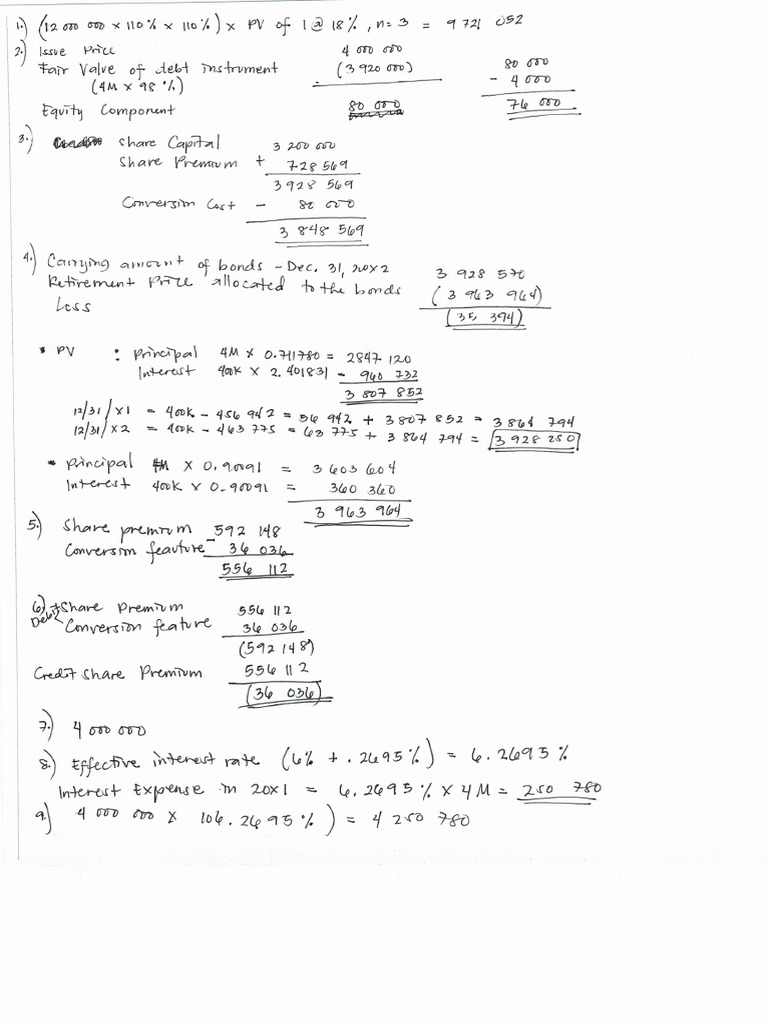 1.) (12 000 000 x 110% x 110%) x PV of 1 @ 18%, n=3 = 9 721 052
2.) Issue Price 4 000 000
Fair Value of debt instrument (3 920 000) 80 000
(4M x 98%) - 4 000
Equity Component 80 000 76 000
3.) Share Capital 3 200 000
Share Premium + 728 569
3 928 569
Conversion Cost - 80 000
3 848 569
4.) Carrying amount of bonds - Dec. 31, 20x2 3 928 570
Retirement Price allocated to the bonds (3 963 964)
Loss (35 394)
• PV : Principal 4M x 0.711780 = 2847 120
Interest 400K x 2.401831 - 960 732
3 807 852
12/31/x1 = 400K - 456 942 = 56 942 + 3 807 852 = 3 864 794
12/31/x2 = 400K - 463 775 = 63 775 + 3 864 794 = 3 928 250
• Principal 4M x 0.90091 = 3 603 604
Interest 400K x 0.90091 = 360 360
3 963 964
5.) Share premium 592 148
Conversion feauture - 36 036
556 112
6.) Share Premium 556 112
Debit Conversion feature 36 036
(592 148)
Credit Share Premium 556 112
(36 036)
7.) 4 000 000
8.) Effective interest rate (6% + .2695%) = 6.2695%
Interest Expense in 20x1 = 6.2695% x 4M = 250 780
9.) 4 000 000 x 106.2695%) = 4 250 780